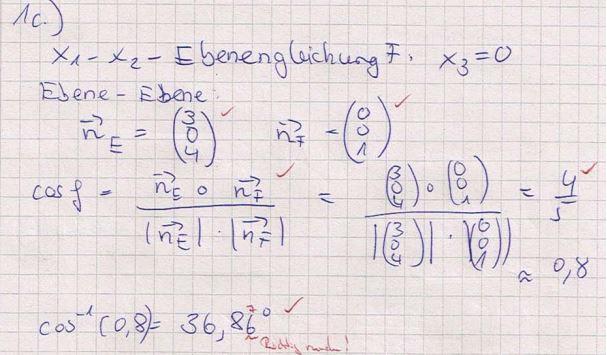 1c.)
x₁-x₂-Ebenengleichung F: x₃=0
Ebene-Ebene:
n⃗_E = (3 0 4) ✓ n⃗_F = (0 0 1) ✓
cos φ = (n⃗_E ∘ n⃗_F) / (|n⃗_E| · |n⃗_F|) ✓ = ((3 0 4) ∘ (0 0 1)) / (|(3 0 4)| · |(0 0 1)|) = 4/5 ✓
≈ 0,8
cos⁻¹(0,8) = 36,86° ✓
7
Richtig runden!